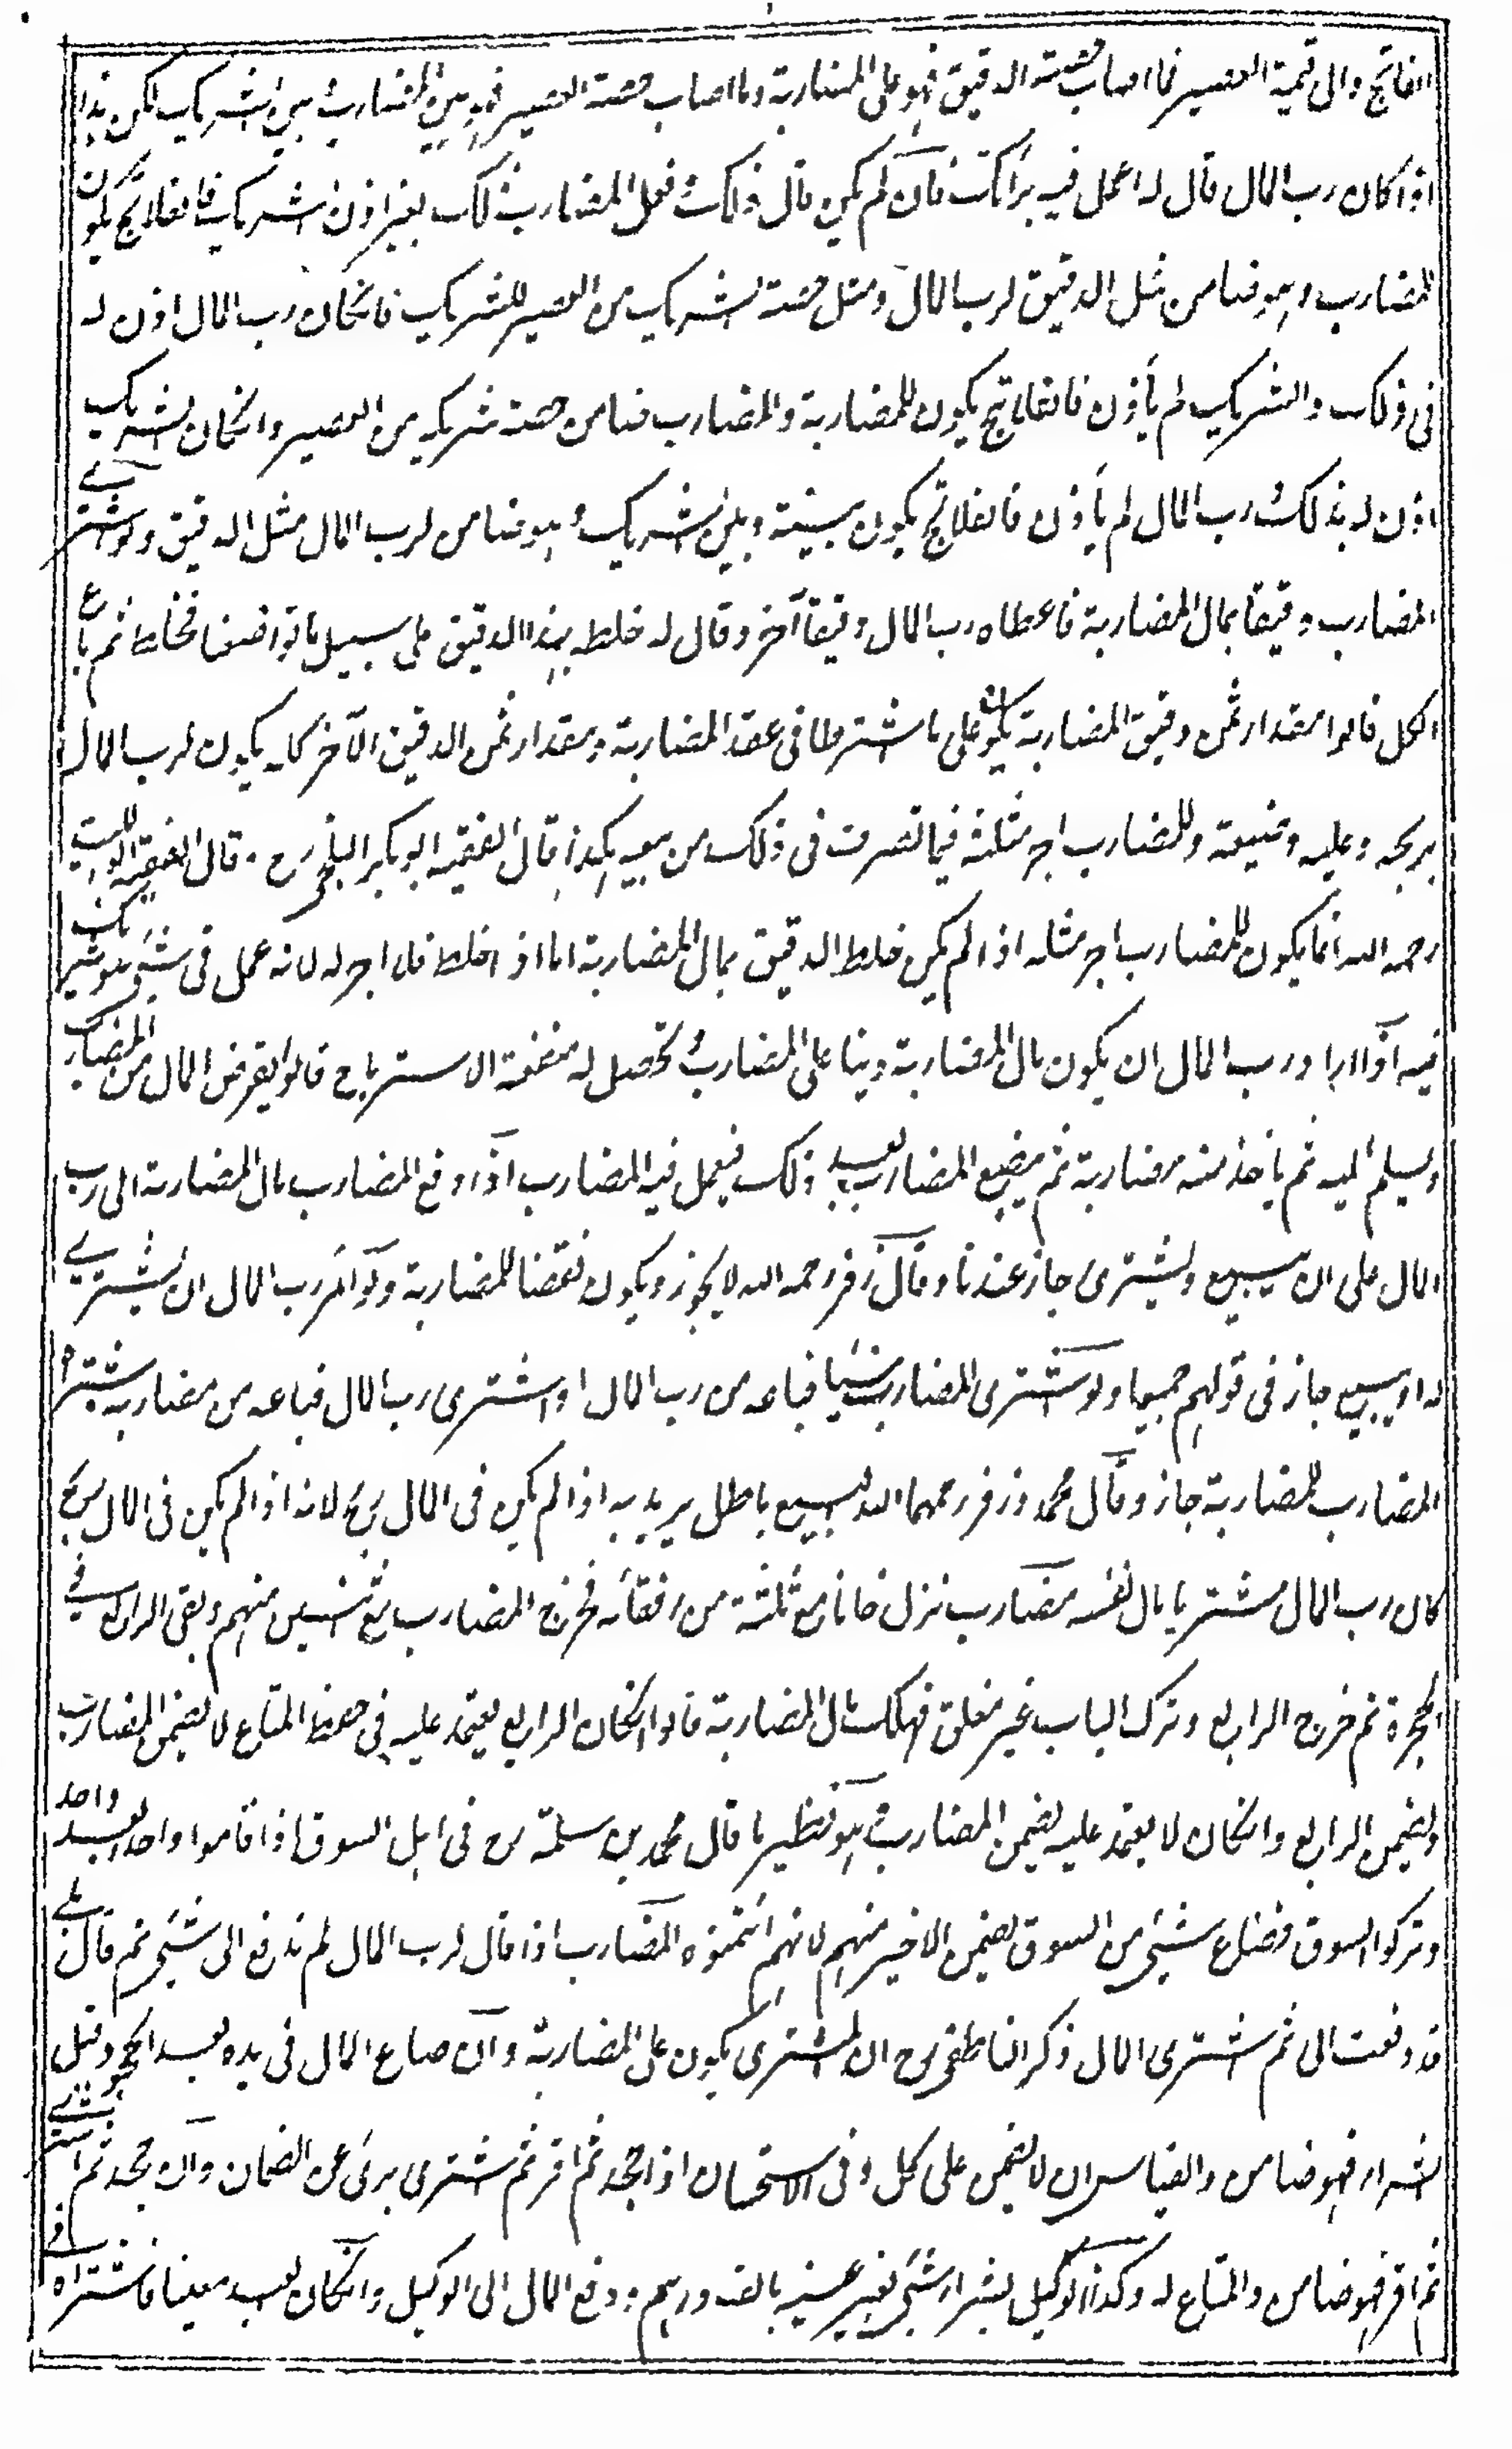 الفلاتج والى قيمة العصير فما اصاب حصة الدقيق فهو على المضاربة وما اصاب حصة العصير فهو بين المضارب وبين الشريك لكن هذا
اذا كان رب المال قال له اعمل فيه برأيك فان لم يكن قال ذلك وفعل المضارب ذلك بغير اذن الشريك فالفلاتج يكون
للمضارب وهو ضامن مثل الدقيق لرب المال ومثل حصة الشريك من العصير للشريك فانكان رب المال اذن له
فى ذلك والشريك لم يأذن فالفلاتج يكون للمضاربة والمضارب ضامن حصة شريكه من العصير وانكان الشريك
اذن له بذلك ورب المال لم يأذن فالفلاتج يكون بينه وبين الشريك وهو ضامن لرب المال مثل الدقيق ولو اشترى
المضارب دقيقا بمال المضاربة فاعطاه رب المال دقيقا آخر وقال له خلطه بهذا الدقيق على سبيل ما تواضعنا فخلط ثم باع
الكل قالوا مقدار ثمن دقيق المضاربة يكون على ما اشترطا فى عقد المضاربة ومقدار ثمن الدقيق الآخر كله يكون لرب المال
ربحه وعليه وضيعته وللمضارب اجر مثله فيما تصرف فى ذلك من بيعه هكذا قال الفقيه ابو بكر البلخى رح . قال الفقيه ابو الليث
رحمه الله انما يكون للمضارب اجر مثله اذا لم يكن خلط الدقيق بمال المضاربة اما اذا خلط فلا اجر له لانه عمل فى شئ هو شريك
فيه اذا اراد رب المال ان يكون مال المضاربة دينا على المضارب وتحصل له منفعة الاسترباح قالوا يقرض المال من المضارب
ويسلم اليه ثم يأخذ منه مضاربة ثم يبضع المضارب بعد ذلك فيعمل فيه المضارب اذا دفع المضارب مال المضاربة الى رب
المال على ان يبيع ويشترى جاز عندنا وقال زفر رحمه الله لا يجوز ويكون نقضا للمضاربة ولو امر رب المال ان يشترى
له او يبيع جاز فى قولهم جميعا ولو اشترى المضارب شيئا فباعه من رب المال او اشترى رب المال فباعه من مضاربه اشتراه
المضارب للمضاربة جاز وقال محمد وزفر رحمهما الله البيع باطل يريد به اذا لم يكن فى المال ربح لانه اذا لم يكن فى المال ربح
كان رب المال مشتريا مال نفسه مضارب نزل خانا مع ثلثة من رفقائه فخرج المضارب مع اثنين منهم وبقى الرابع فى
الحجرة ثم خرج الرابع وترك الباب غير مغلق فهلك مال المضاربة قالوا انكان الرابع يعتمد عليه فى حفظ المتاع لا يضمن المضارب
ويضمن الرابع وانكان لا يعتمد عليه يضمن المضارب وهو نظير ما قال محمد بن سلمة رح فى اهل السوق اذا قاموا واحدا بعد واحد
وتركوا السوق فضاع شئ من السوق يضمن الاخير منهم لانهم ائتمنوه المضارب اذا قال لرب المال لم تدفع الى شئ ثم قال بلى
قد دفعت الى ثم اشترى المال ذكر الناطفى رح ان المشترى يكون على المضاربة وان ضاع المال فى يده بعد الجحود قبل
الشراء فهو ضامن والقياس ان لا يضمن على كل وفى الاستحسان اذا جحد ثم اقر ثم اشترى برئ عن الضمان وان جحد ثم اشترى
ثم اقر فهو ضامن والمتاع له وكذا الوكيل بشراء شئ بغير عينه بالف درهم ودفع المال الى الوكيل وانكان العبد معينا فاشتراه